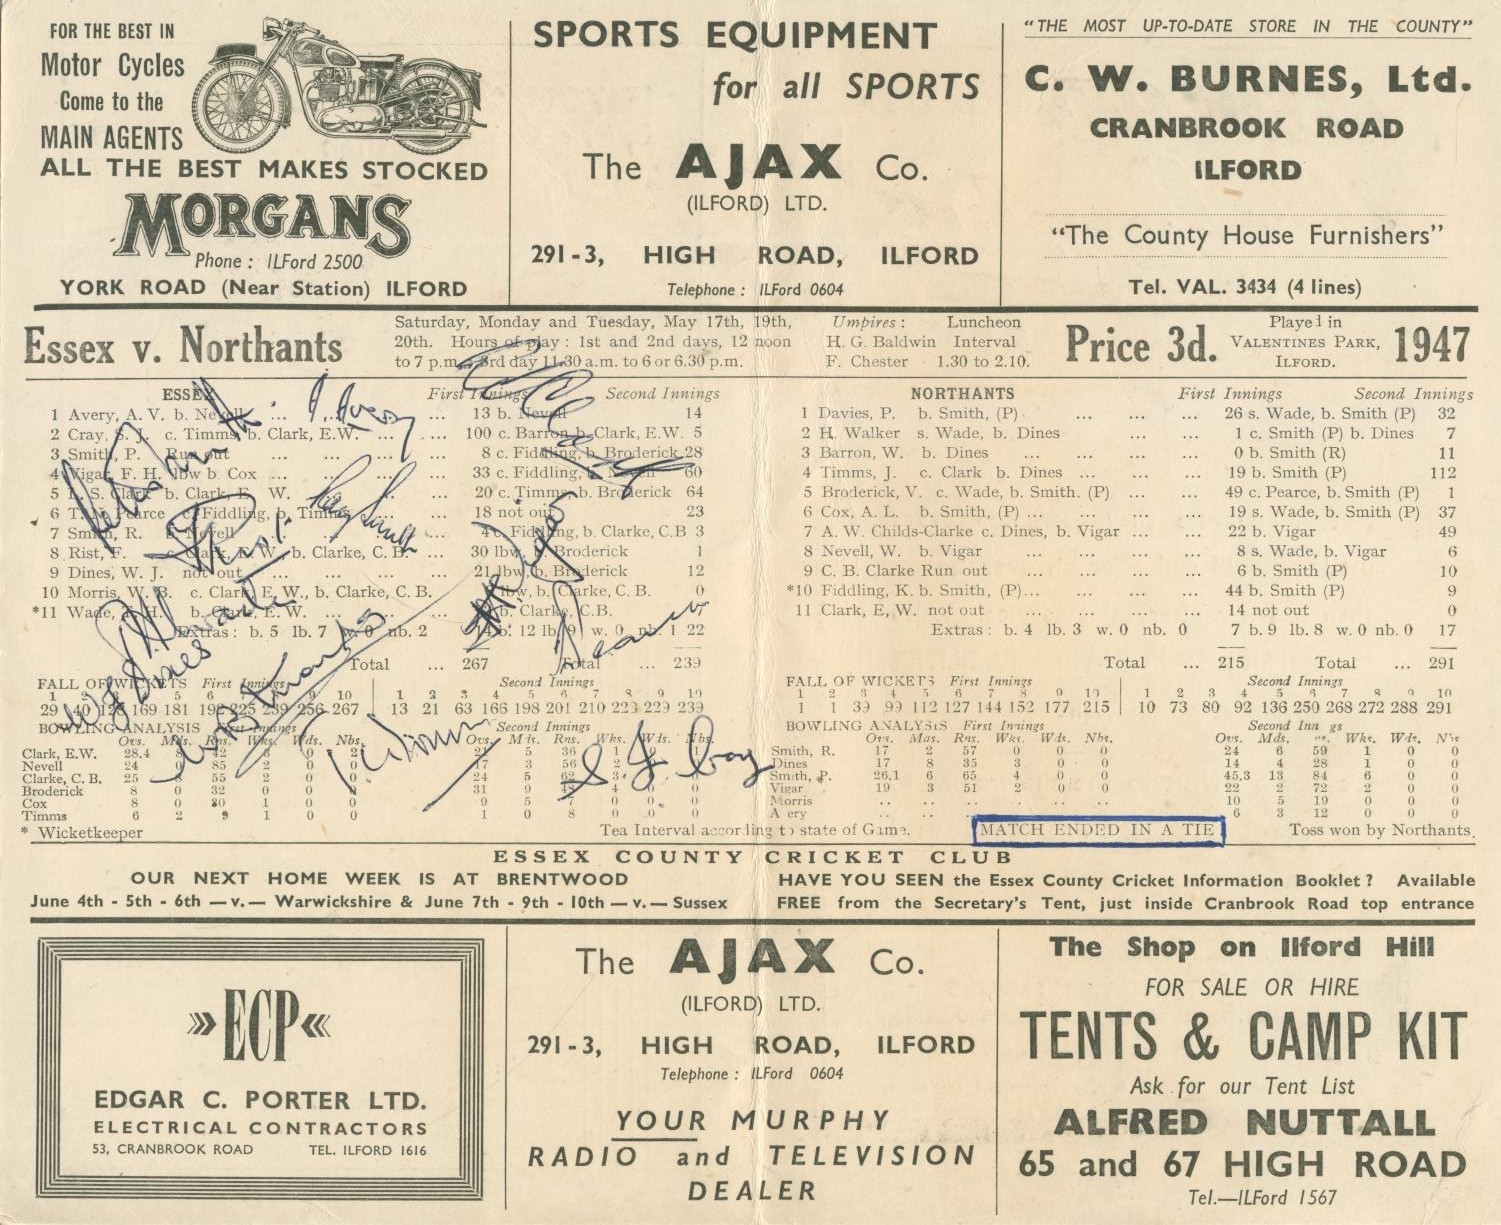 FOR THE BEST IN
Motor Cycles
Come to the
MAIN AGENTS
ALL THE BEST MAKES STOCKED
MORGANS
Phone : ILFord 2500
YORK ROAD (Near Station) ILFORD
SPORTS EQUIPMENT
for all SPORTS
The AJAX Co.
(ILFORD) LTD.
291-3, HIGH ROAD, ILFORD
Telephone : ILFord 0604
"THE MOST UP-TO-DATE STORE IN THE COUNTY"
C. W. BURNES, Ltd.
CRANBROOK ROAD
ILFORD
"The County House Furnishers"
Tel. VAL. 3434 (4 lines)
Essex v. Northants
Saturday, Monday and Tuesday, May 17th, 19th,
20th. Hours of play : 1st and 2nd days, 12 noon
to 7 p.m. 3rd day 11.30 a.m. to 6 or 6.30 p.m.
Umpires : Luncheon
H. G. Baldwin Interval
F. Chester 1.30 to 2.10.
Price 3d.
Played in
VALENTINES PARK,
ILFORD.
1947
ESSEX First Innings Second Innings
1 Avery, A. V. b. Nevell ... ... ... 13 b. Nevell 14
2 Cray, S. J. c. Timms, b. Clark, E.W. ... ... 100 c. Barron b. Clark, E.W. 5
3 Smith, P. Run out ... 8 c. Fiddling, b. Broderick 28
4 Vigar, F. H. lbw b Cox ... 33 c. Fiddling, b. Nevell 60
5 L. S. Clark b. Clark, E. W. ... 20 c. Timms, b. Broderick 64
6 T.N. Pearce c. Fiddling, b. Timms 18 not out 23
7 Smith, R. b. Nevell ... 4 c. Fiddling, b. Clarke, C.B 3
8 Rist, F. c. Clark, E. W., b. Clarke, C. B. ... 30 lbw, b. Broderick 1
9 Dines, W. J. not out ... ... ... 21 lbw, b. Broderick 12
10 Morris, W. B. c. Clark, E. W., b. Clarke, C. B. lbw, b. Clarke, C. B. 0
*11 Wade, T. H. b. Clark, E. W. b. Clarke, C.B.
Extras : b. 5 lb. 7 w. 0 nb. 2 14 b. 12 lb. 9 w. 0 nb. 1 22
Total ... 267 Total ... 239
FALL OF WICKETS First Innings
29 40 126 169 181 196 225 239 256 267
Second Innings
1 2 3 4 5 6 7 8 9 10
13 21 63 166 198 201 210 223 229 239
BOWLING ANALYSIS First Innings Second Innings
Ovs. Mds. Rns. Wks. Wds. Nbs. Ovs. Mds. Rns. Wks. Wds. Nbs.
Clark, E.W. 28.4 42 2 21 5 36 1
Nevell 24 0 85 2 0 0 17 3 56 2
Clarke, C. B. 25 55 2 0 0 24 5 62 3
Broderick 8 0 32 0 0 0 31 9 48 4 0
Cox 8 0 30 1 0 0 9 5 7 0 0 0
Timms 6 2 9 1 0 0 1 0 8 0 0 0
* Wicketkeeper
NORTHANTS First Innings Second Innings
1 Davies, P. b. Smith, (P) ... ... ... 26 s. Wade, b. Smith (P) 32
2 H. Walker s. Wade, b. Dines ... ... 1 c. Smith (P) b. Dines 7
3 Barron, W. b. Dines ... ... ... ... 0 b. Smith (R) 11
4 Timms, J. c. Clark b. Dines ... ... 19 b. Smith (P) 112
5 Broderick, V. c. Wade, b. Smith. (P) ... ... 49 c. Pearce, b. Smith (P) 1
6 Cox, A. L. b. Smith, (P) ... ... ... ... 19 s. Wade, b. Smith (P) 37
7 A. W. Childs-Clarke c. Dines, b. Vigar ... ... 22 b. Vigar 49
8 Nevell, W. b. Vigar ... ... ... ... 8 s. Wade, b. Vigar 6
9 C. B. Clarke Run out ... ... ... ... 6 b. Smith (P) 10
*10 Fiddling, K. b. Smith, (P)... ... ... ... 30 b. Smith (P) 9
11 Clark, E, W. not out ... ... ... 14 not out 0
Extras : b. 4 lb. 3 w. 0 nb. 0 7 b. 9 lb. 8 w. 0 nb. 0 17
Total ... 215 Total ... 291
FALL OF WICKETS First Innings Second Innings
1 2 3 4 5 6 7 8 9 10 1 2 3 4 5 6 7 8 9 10
1 1 39 99 112 127 144 152 177 215 10 73 80 92 136 250 268 272 288 291
BOWLING ANALYSIS First Innings Second Innings
Ovs. Mas. Rns. Wks. Wds. Nbs. Ovs. Mds. Wks. Wds.
Smith, R. 17 2 57 0 0 0 24 6 59 1 0 0
Dines 17 8 35 3 0 0 14 4 28 1 0 0
Smith, P. 26.1 6 65 4 0 0 45.3 13 84 6 0 0
Vigar 19 3 51 2 0 0 22 2 72 2 0 0
Morris .. .. .. .. .. .. 10 5 19 0 0 0
Avery .. .. .. 6 3 12 0 0 0
Tea Interval according to state of Game. MATCH ENDED IN A TIE Toss won by Northants.
ESSEX COUNTY CRICKET CLUB
OUR NEXT HOME WEEK IS AT BRENTWOOD
June 4th - 5th - 6th —v.— Warwickshire & June 7th - 9th - 10th —v.— Sussex
HAVE YOU SEEN the Essex County Cricket Information Booklet ? Available
FREE from the Secretary's Tent, just inside Cranbrook Road top entrance
ECP
EDGAR C. PORTER LTD.
ELECTRICAL CONTRACTORS
53, CRANBROOK ROAD TEL. ILFORD 1616
The AJAX Co.
(ILFORD) LTD.
291-3, HIGH ROAD, ILFORD
Telephone : ILFord 0604
YOUR MURPHY
RADIO and TELEVISION
DEALER
The Shop on Ilford Hill
FOR SALE OR HIRE
TENTS & CAMP KIT
Ask for our Tent List
ALFRED NUTTALL
65 and 67 HIGH ROAD
Tel.—ILFord 1567